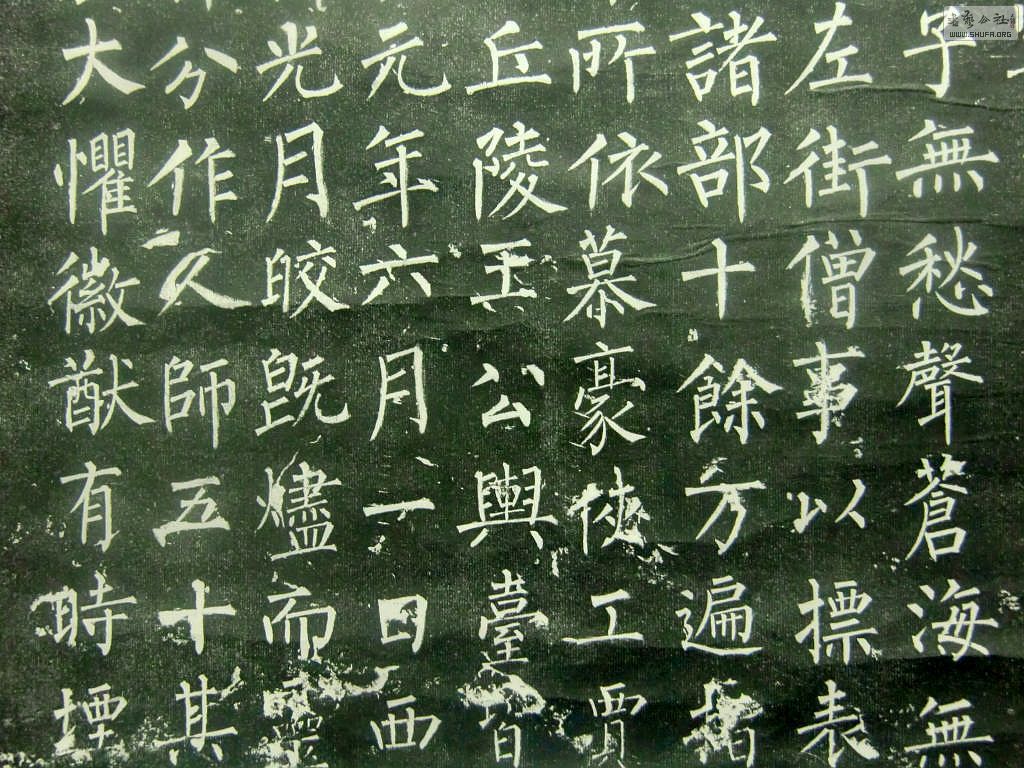 宇無愁聲蒼海無
左街僧事以標表
諸部十餘万遍指
所依慕豪俠工賈
丘陵王公輿臺皆
元年六月一日西
光月皎既燼而靈
分作久師五十其
大懼徽猷有時堙
WWW.SHUFA.ORG